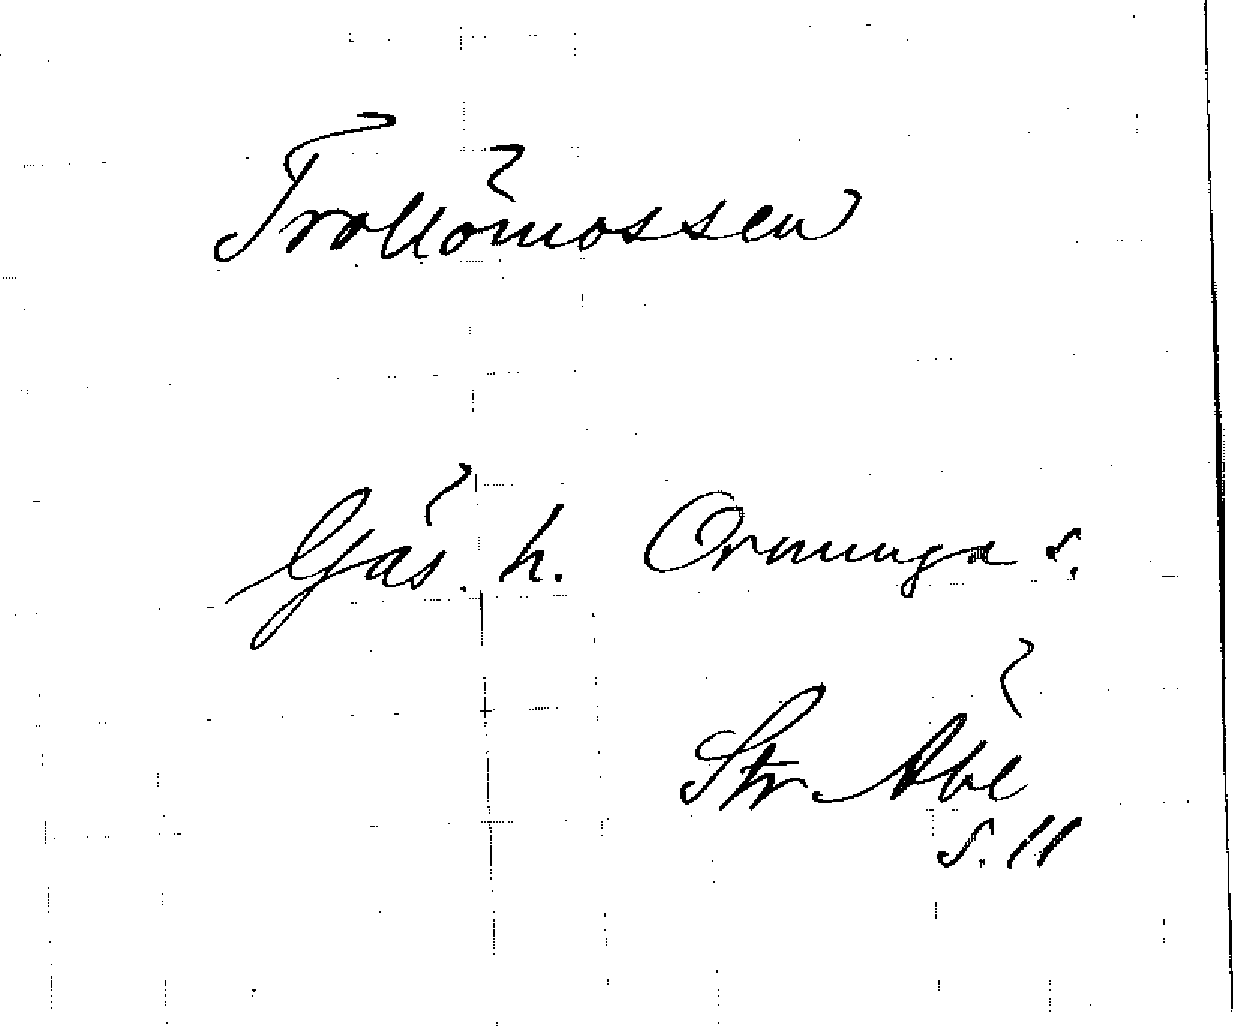 Trollömossen
Gås. h. Ormunga s.
Str Abl
s. 11